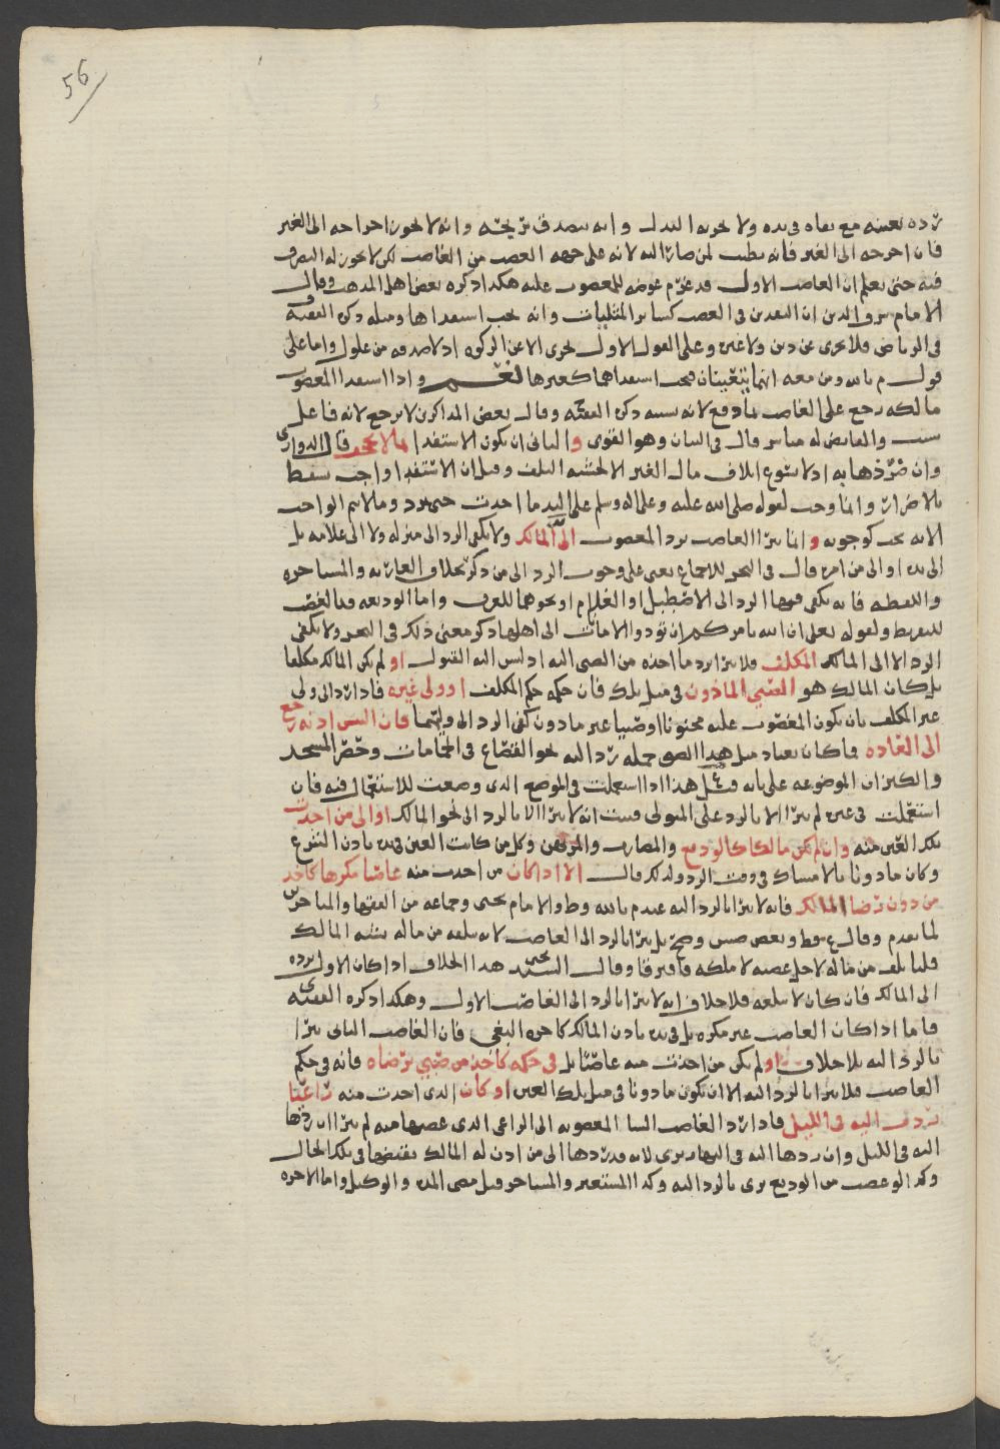 56
رده بعينه مع بقاه في يده ولا يجزيه البدل وانه يتصدق بربحه وانه لا يجوز اخراجه الى الغير
فان اخرجه الى الغير فانه يطيب لمن صار اليه لانه على جهة الغصب من الغاصب لكن لا يجوز له التصرف
فيه حتى يعلم ان الغاصب الاول قد غرم عوضه للمغصوب عليه هكذا ذكره بعض اهل المذهب وقال
الامام ان النقدين في الغصب كساير المثليات وانه يجب استفداها ومثله ذكر الفقيه
في الرياض فلا يجزي عن دين ولا غيره وعلى القول الاول يجزي الا عن الزكوه اذ لا صدقه من غلول واما على
قول م بالله ومن معه انهما يتعينان فيجب استفداهما كغيرها نعم واذا استفدا المغصوب
مالكه رجع على الغاصب بما دفع لانه بسببه ذكره الفقيه وقال بعض المذاكرين لا يرجع لانه فاعل
سبب والقابض له مباشر قال في البيان وهو القوي والثاني ان يكون الاستفدا بما لا يجحف قال الدواري
وان ضر ذهابه اذ لا يسوغ اتلاف مال الغير الا لخشيه التلف وقيل ان الاستفدا واجب يسقط
بالاضرار وانما وجب لقوله صلى الله عليه وعلى اله وسلم على اليد ما اخذت حتى ترد وما لا يتم الواجب
الا به يجب كوجوبه وانما يبرا الغاصب برد المغصوب الى المالك ولا يكفي الرد الى منزله ولا الى غلامه بل
الى يده او الى من امره قال في البحر للاجماع يعني على وجوب الرد الى من ذكر بخلاف العاريه والمستاجره
واللقطه فانه يكفي فيها الرد الى الاصطبل او الغلام او نحوهما للعرف واما الوديعه فكالغصب
للتفريط ولقوله تعلى ان الله يامركم ان تودوا الامانات الى اهلها ذكر معنى ذلك في البحر ولا يكفي
الرد الا الى المالك المكلف فلا يبرا برد ما اخذه من الصبي اليه اذ ليس اليه القبول او لم يكن المالك مكلفا
بل كان المالك هو الصبي الماذون في مثل ذلك فان حكمه حكم المكلف او ولي غيره فاذا رد الى ولي
غير المكلف بان يكون المغصوب عليه مجنونا او صبيا غير ماذون كفى الرد الى وليهما فان التبس اذنه رجع
الى العاده فما كان يعتاد مثل هذا الصبي حمله رد اليه نحو القصاع في الحمامات وحصر المسجد
والكيزان الموضوعه على بابه وقيل هذا اذا استعملت في الموضع الذي وضعت للاستعمال فيه فان
استعملت في غيره لم يبرا الا بالرد على المتولي فثبت انه لا يبرا الا بالرد الى نحو المالك او الى من اخذت
تلك العين منه وان لم يكن مالكا كالوديع والمضارب والمرتهن وكل من كانت العين في يده باذن الشرع
وكان ماذونا بالامساك في وقت الرد ولذلك قال الا اذا كان من اخذت منه غاصبا مكرها كاخذ
من دون رضا المالك فانه لا يبرا بالرد اليه عند م بالله وط والامام يحيى وجماعه من الفقها والمتاخرين
لما تقدم وقال ع بل يبرا بالرد الى الغاصب لانه سلبه من ماله بسببه المالك
قلنا تلف من ماله لاجل غصبه لا ملكه فافترقا وقال السيد يحيى هذا الخلاف اذا كان الاول يرده
الى المالك فان كان لا يبلغه فلا خلاف انه لا يبرا بالرد الى الغاصب الاول وهكذا ذكره الفقيه ى
فاما اذا كان الغاصب غير مكره بل في يده باذن المالك كاجره البغي فان الغاصب الثاني يبرا
بالرد اليه بلا خلاف او لم يكن من اخذت منه غاصبا بل في حكمه كاخذ من صبي برضاه فانه في حكم
الغاصب فلا يبرا بالرد اليه الا ان يكون ماذونا في مثل تلك العين او كان الذي اخذت منه راعيا
ردت اليه في الليل فاذا رد الغاصب الشا المغصوبه الى الراعي الذي غصبها منه لم يبرا ان ردها
اليه في الليل وان ردها اليه في النهار بري لانه قد ردها الى من اذن له المالك بقبضها في تلك الحال
وكذا لو غصب من الوديع بري بالرد اليه وكذا المستعير والمستاجر قبل مضي المده والوكيل واما الاجره